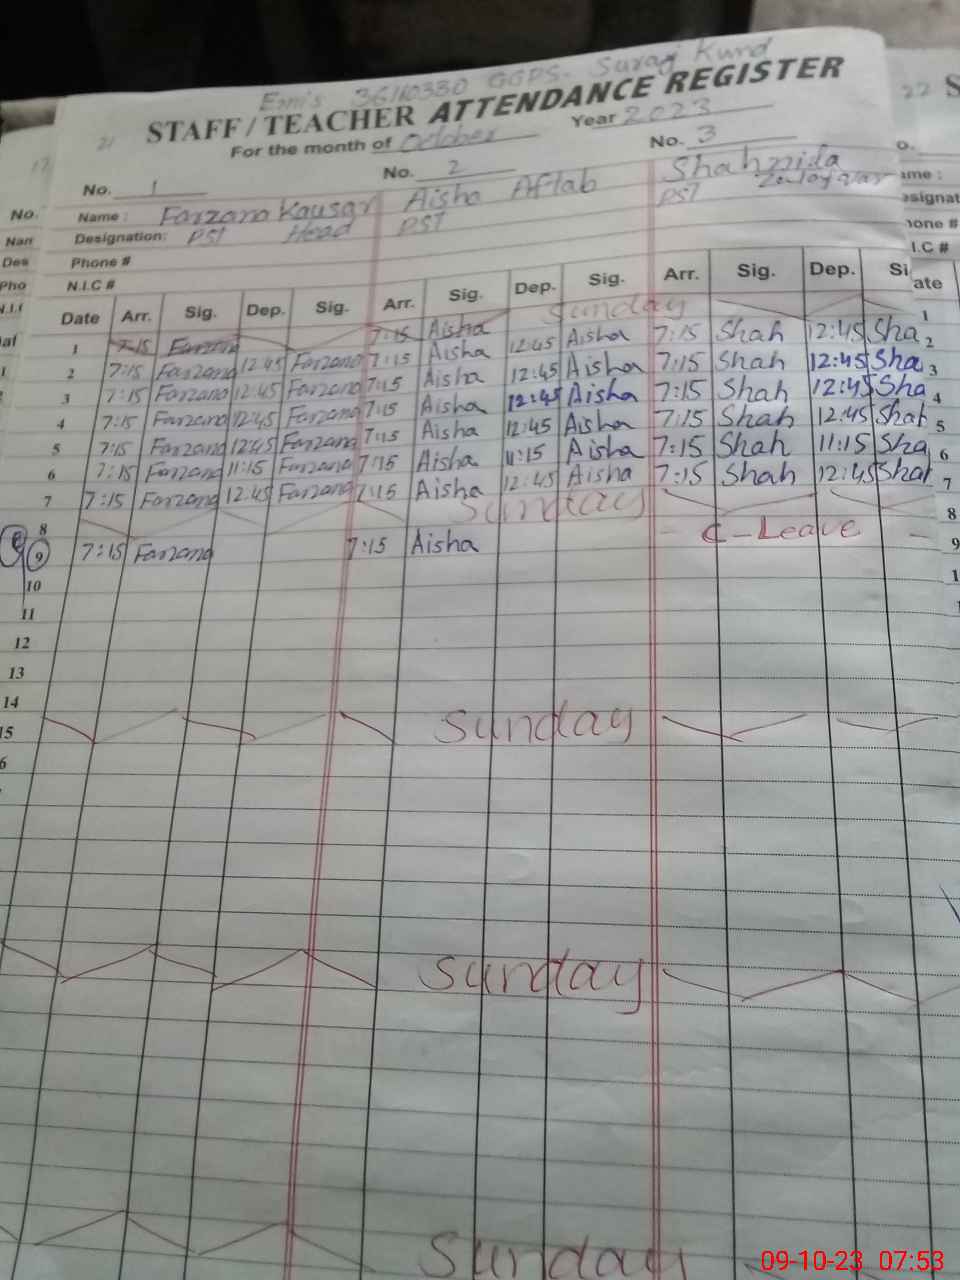 Emis 36110330 GGPS. Suraj Kund
STAFF / TEACHER ATTENDANCE REGISTER
For the month of October Year 2023
No. 1 No. 2 No. 3
Name : Farzana Kausar Aisha Aftab Shahnida
Designation: PST Head PST PST
Phone #
N.I.C #
Date Arr. Sig. Dep. Sig. Arr. Sig. Dep. Sig. Arr. Sig. Dep. Si
1 Sunday
7:15 Farzana 7:15 Aisha
2 7:15 Farzana 12:45 Farzana 7:15 Aisha 12:45 Aisha 7:15 Shah 12:45 Sha
3 7:15 Farzana 12:45 Farzana 7:15 Aisha 12:45 Aisha 7:15 Shah 12:45 Sha
4 7:15 Farzana 12:45 Farzana 7:15 Aisha 12:45 Aisha 7:15 Shah 12:45 Sha
5 7:15 Farzana 12:45 Farzana 7:15 Aisha 12:45 Aisha 7:15 Shah 12:45 Shah
6 7:15 Farzana 11:15 Farzana 7:15 Aisha 11:15 Aisha 7:15 Shah 11:15 Sha
7 7:15 Farzana 12:45 Farzana 7:15 Aisha 12:45 Aisha 7:15 Shah 12:45 Shah
8 Sunday
9 7:15 Farzana 7:15 Aisha C-Leave
10
11
12
13
14
15 Sunday
Sunday
Sunday
09-10-23 07:53